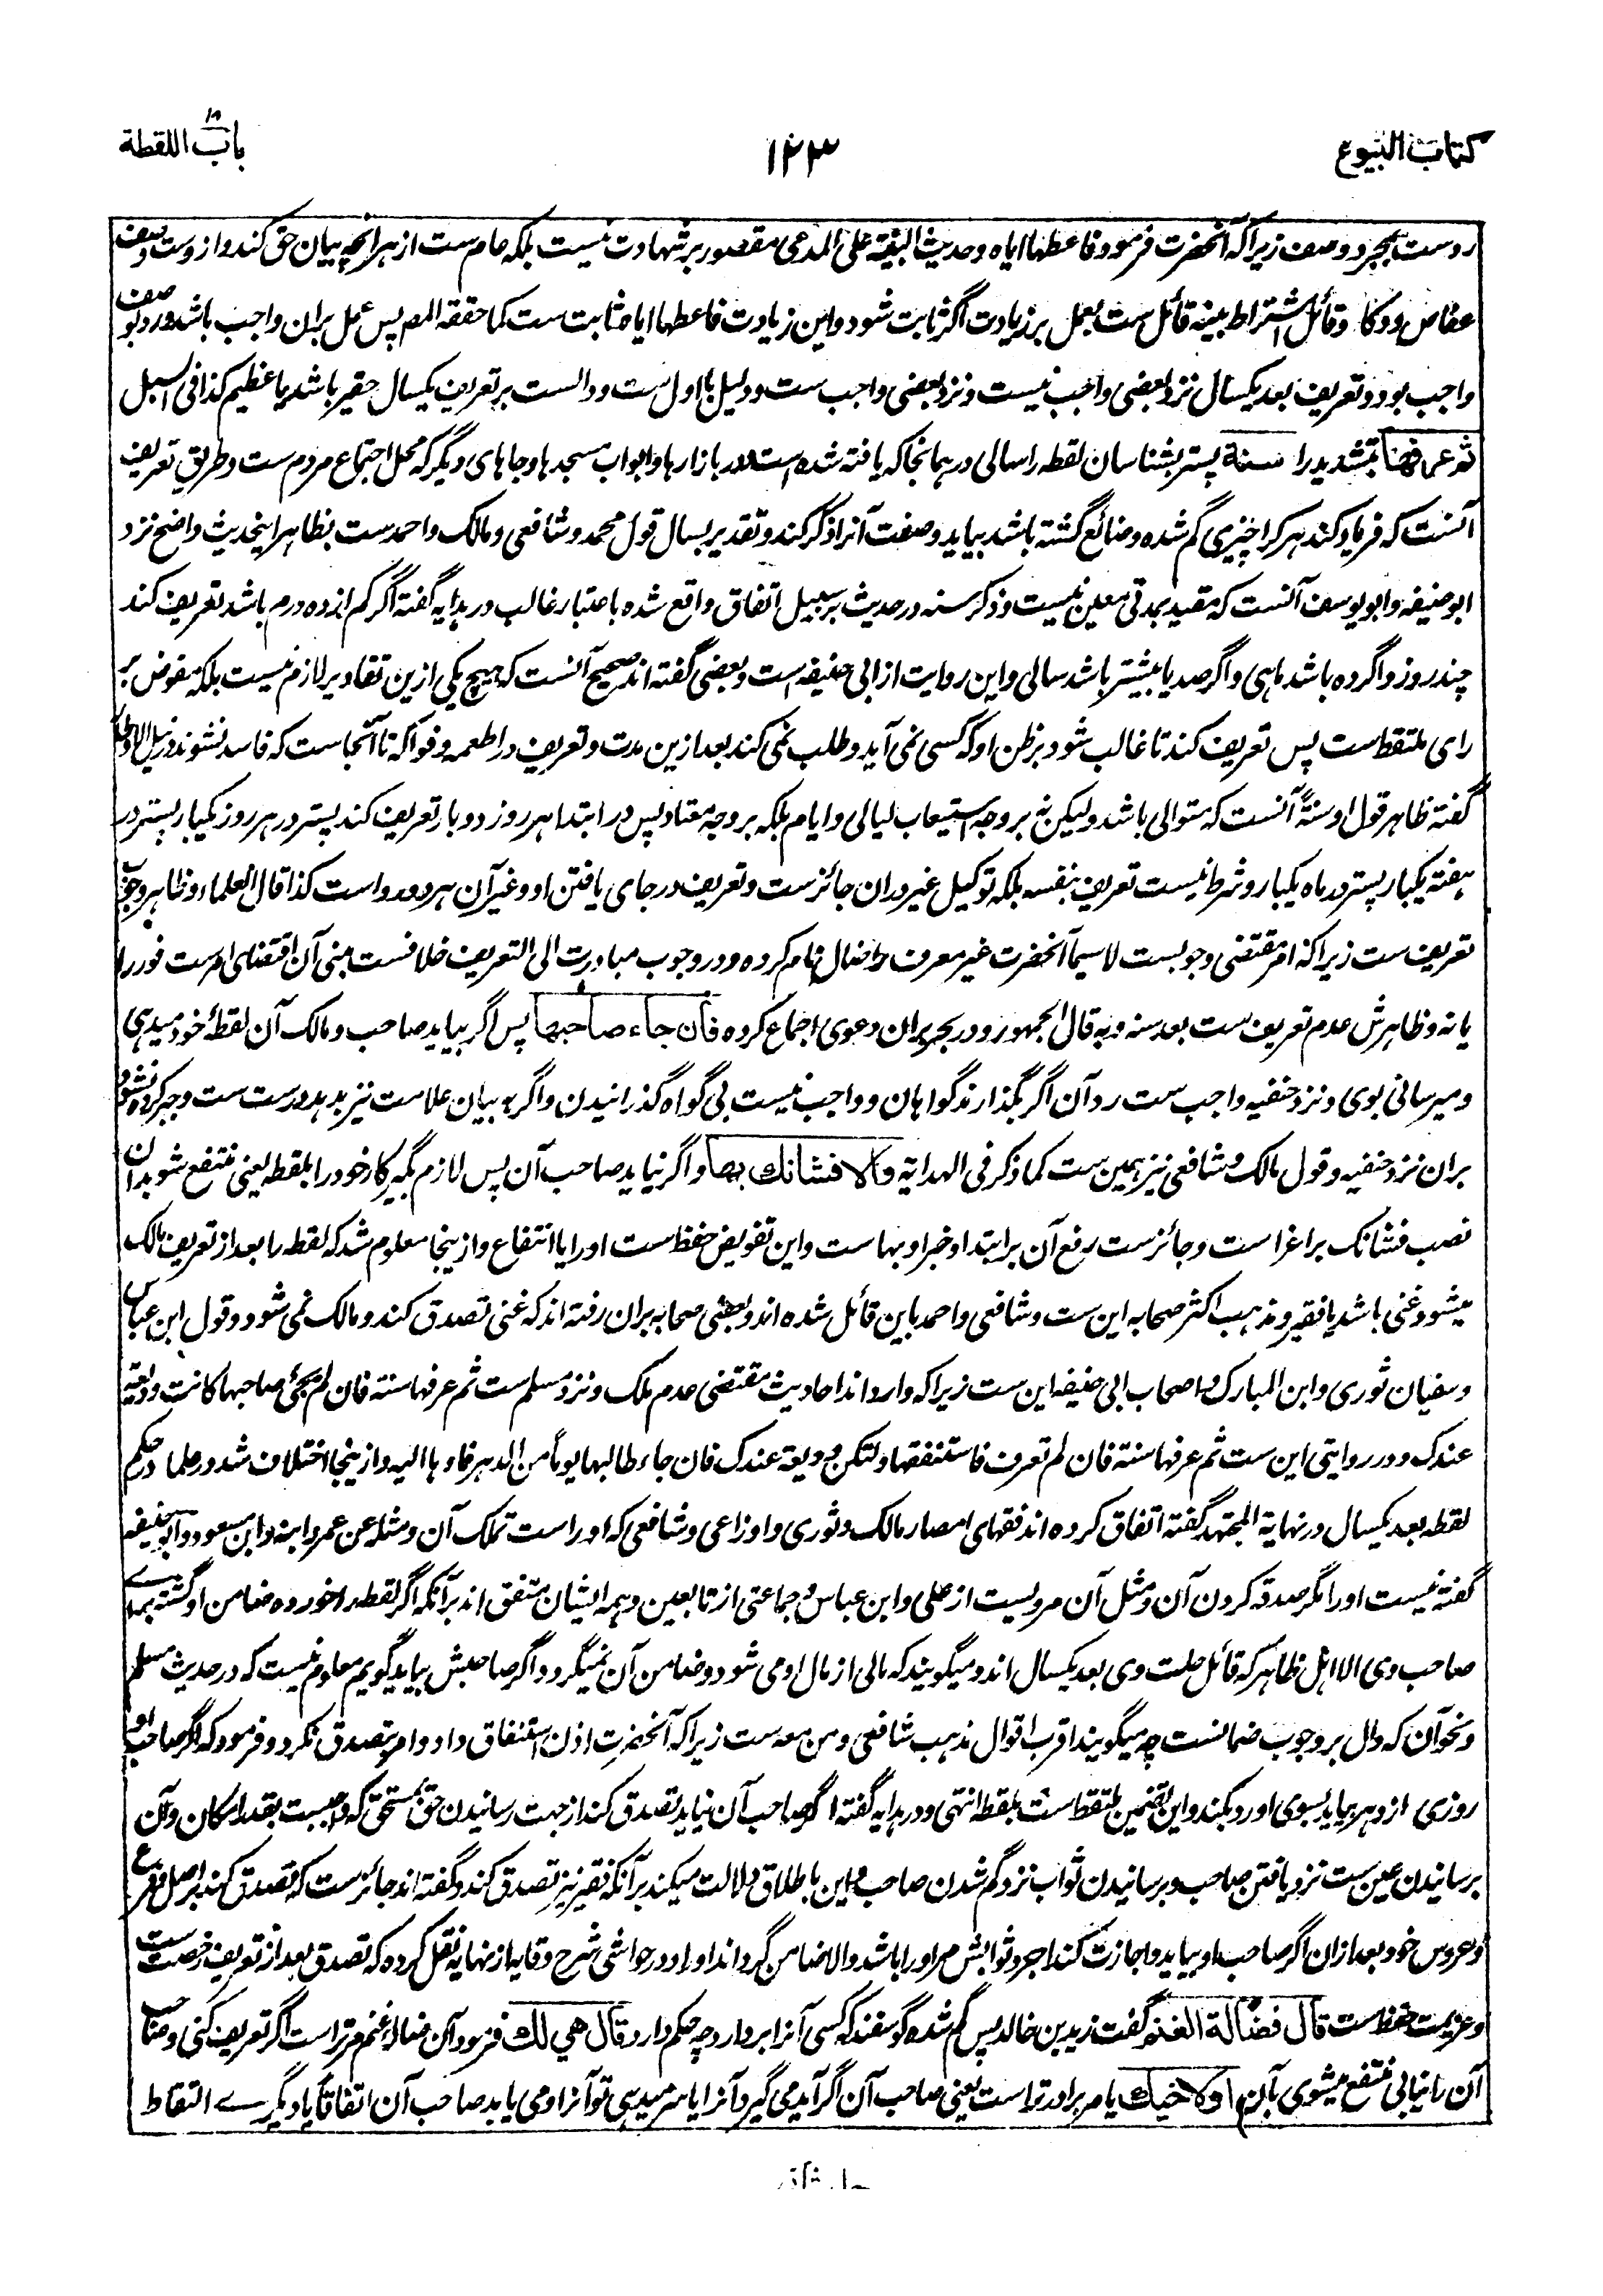 کتاب البیوع
۱۲۳
باب اللقطة
ردست بمجرد وصف زیراکه آنحضرت فرمود فاعطها ایاه وحدیث البینة علی المدعی مقصور بر شهادت نیست بلکه عام ست از هر انچه بیان حق کند و ازوست وصف
عفاص و وکا و قائل اشتراط بینه قائل ست بعمل بر زیادت اگر ثابت شود و این زیادت فاعطها ایاه ثابت ست کما حققه المص پس عمل بران واجب باشد و رد بوصف
واجب بود و تعریف بعد یکسال نزد بعضی واجب نیست و نزد بعضی واجب ست و دلیل با اول ست و دالست بر تعریف یکسال حقیر باشد یا عظیم کذا فی السبل
ثم عرفها بتشدید را سنة پستر بشناسان لقطه را سالی در همانجا که یافته شده است و در بازارها و ابواب مسجدها و جاهای دیگر که محل اجتماع مردم ست و طریق تعریف
آنست که فریاد کند هر کرا چیزی گم شده و ضائع گشته باشد بیاید و صفت آنرا ذکر کند و تقدیر بسال قول محمد و شافعی و مالک و احمد ست بظاهر اینحدیث واضح نزد
ابوحنیفه و ابویوسف آنست که مقید بمدتی معین نیست و ذکر سنه در حدیث بر سبیل اتفاق واقع شده باعتبار غالب در هدایه گفته اگر کم از ده درم باشد تعریف کند
چند روز و اگر ده باشد ماهی و اگر صد یا بیشتر باشد سالی و این روایت از ابی حنیفه است و بعضی گفته اند صحیح آنست که هیچ یکی ازین تقادیر لازم نیست بلکه مفوض بر
رای ملتقط ست پس تعریف کند تا غالب شود بر ظن او که کسی نمی آید و طلب نمی کند بعد ازین مدت و تعریف در اطعمه و فواکه تا آنجاست که فاسد نشوند در نیل الاوطار
گفته ظاهر قول او سنةً آنست که متوالی باشد ولیکن نه بر وجه استیعاب لیالی و ایام بلکه بر وجه معتاد پس در ابتدا هر روز دو بار تعریف کند پستر در هر روز یکبار پستر در
هفته یکبار پستر در ماه یکبار و شرط نیست تعریف بنفسه بلکه توکیل غیر دران جائز ست و تعریف در جای یافتن او و غیر آن هر دو رواست کذا قال العلماء و ظاهر وجوب
تعریف ست زیراکه امر مقتضی وجوبست لاسیما آنحضرت غیر معرف را ضال نام کرده و در وجوب مبادرت الی التعریف خلافست مبنی آن اقتضای امرست فور را
یا نه و ظاهرش عدم تعریف ست بعد سنه و به قال الجمهور و در بحر بران دعوی اجماع کرده فان جاء صاحبها پس اگر بیاید صاحب و مالک آن لقطه خود میدهی
و میرسانی بوی و نزد حنفیه واجب ست رد آن اگر بگذارند گواهان و واجب نیست بی گواه گذرانیدن و اگر به بیان علامت نیز بدهد درست ست و جبر کرده نشود
بران نزد حنفیه و قول مالک و شافعی نیز همین ست کما ذکر فی الهدایة والا فشانك بها و اگر نیاید صاحب آن پس لازم بگیر کار خود را بلقطه یعنی منتفع شو بدان
نصب فشانک بر اغراست و جائز ست رفع آن بر ابتدا و خبر او بهاست و این تفویض حفظ ست اورا یا انتفاع و ازینجا معلوم شد که لقطه را بعد از تعریف مالک
میشود غنی باشد یا فقیر و مذهب اکثر صحابه این ست و شافعی و احمد باین قائل شده اند و بعضی صحابه بران رفته اند که غنی تصدق کند و مالک نمی شود و قول ابن عباس
و سفیان ثوری و ابن المبارک و اصحاب ابی حنیفه این ست زیراکه وارد اند احادیث مقتضی عدم ملک و نزد مسلم ست ثم عرفها سنة فان لم یجئ صاحبها کانت ودیعة
عندک و در روایتی این ست ثم عرفها سنة فان لم تعرف فاستنفقها ولتکن ودیعة عندک فان جاء طالبها یوماً من الدهر فادها الیه و ازینجا اختلاف شد در علما در حکم
لقطه بعد یکسال در نهایة المجتهد گفته اتفاق کرده اند فقهای امصار مالک و ثوری و اوزاعی و شافعی که اوراست تملک آن و مثله عن عمر و ابنه و ابن مسعود و ابوحنیفه
گفته نیست اورا مگر صدقه کردن آن و مثل آن مرویست از علی و ابن عباس و جماعتی از تابعین و همه ایشان متفق اند برآنکه اگر لقطه را خورده ضامن او گشته برای
صاحب وی الا اهل ظاهر که قائل حلت وی بعد یکسال اند و میگویند که مالی از مال او می شود و ضامن آن نمیگردد اگر صاحبش بیاید گویم معلوم نیست که در حدیث مسلم
و نحو آن که دال بر وجوب ضمانست چه میگویند اقرب اقوال مذهب شافعی و من معه ست زیراکه آنحضرت اذن استنفاق داد و امر بتصدق نکرد و فرمود که اگر صاحب او
روزی از دهر بیاید بسوی او رد بکند و این تضمین ملتقط ست بلقطه انتهی و در هدایه گفته اگر صاحب آن نیاید تصدق کند از جهت رسانیدن حق بمستحق که واجبست بقدر امکان و آن
برسانیدن عین ست نزد یافتن صاحب و برسانیدن ثواب نزد گم شدن صاحب و این باطلاق دلالت میکند برآنکه فقیر نیز تصدق کند و گفته اند جائز ست که تصدق کند بر اصل و فرع
و عروس خود بعد ازان اگر صاحب او بیاید و اجازت کند اجر و ثوابش مر اورا باشد والا ضامن گرداند اورا و در حواشی شرح وقایه از نهایه نقل کرده که تصدق بعد از تعریف رخصت ست
و عزیمت حفظ ست قال فضالة الغنم گفت زید بن خالد پس گم شده گوسفند که کسی آنرا بردارد چه حکم دارد قال هي لك فرمود آن ضاله غنم مر تراست اگر تعریف کنی و صاحب
آن را نیابی منتفع میشوی بآن او لاخيك یا مر برادر تراست یعنی صاحب آن اگر آید می گیرد آنرا یا سر میدهی تو آنرا و می یابد صاحب آن اتفاقاً یا دیگرے التقاط